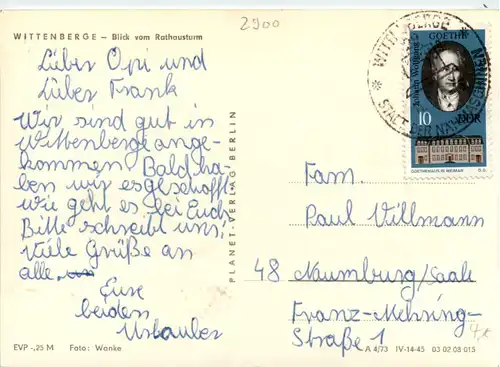 2900
WITTENBERGE – Blick vom Rathausturm
Lieber Opi und
Lieber Frank
Wir sind gut in
Wittenberge ange-
kommen Bald ha-
ben wir es geschafft
wie geht es bei Euch
Bitte schreibt uns,
Viele Grüße an
alle.
Eure
beiden
Urlauber
EVP -,25 M Foto: Wanke
PLANET-VERLAG BERLIN
WITTENBERGE
STADT DER
Johann Wolfgang
GOETHE
10
DDR
GOETHEHAUS IN WEIMAR
Fam.
Paul Villmann
48 Naumburg/Saale
Franz-Mehring-
Straße 1
A 4/73 IV-14-45 03 02 08 015